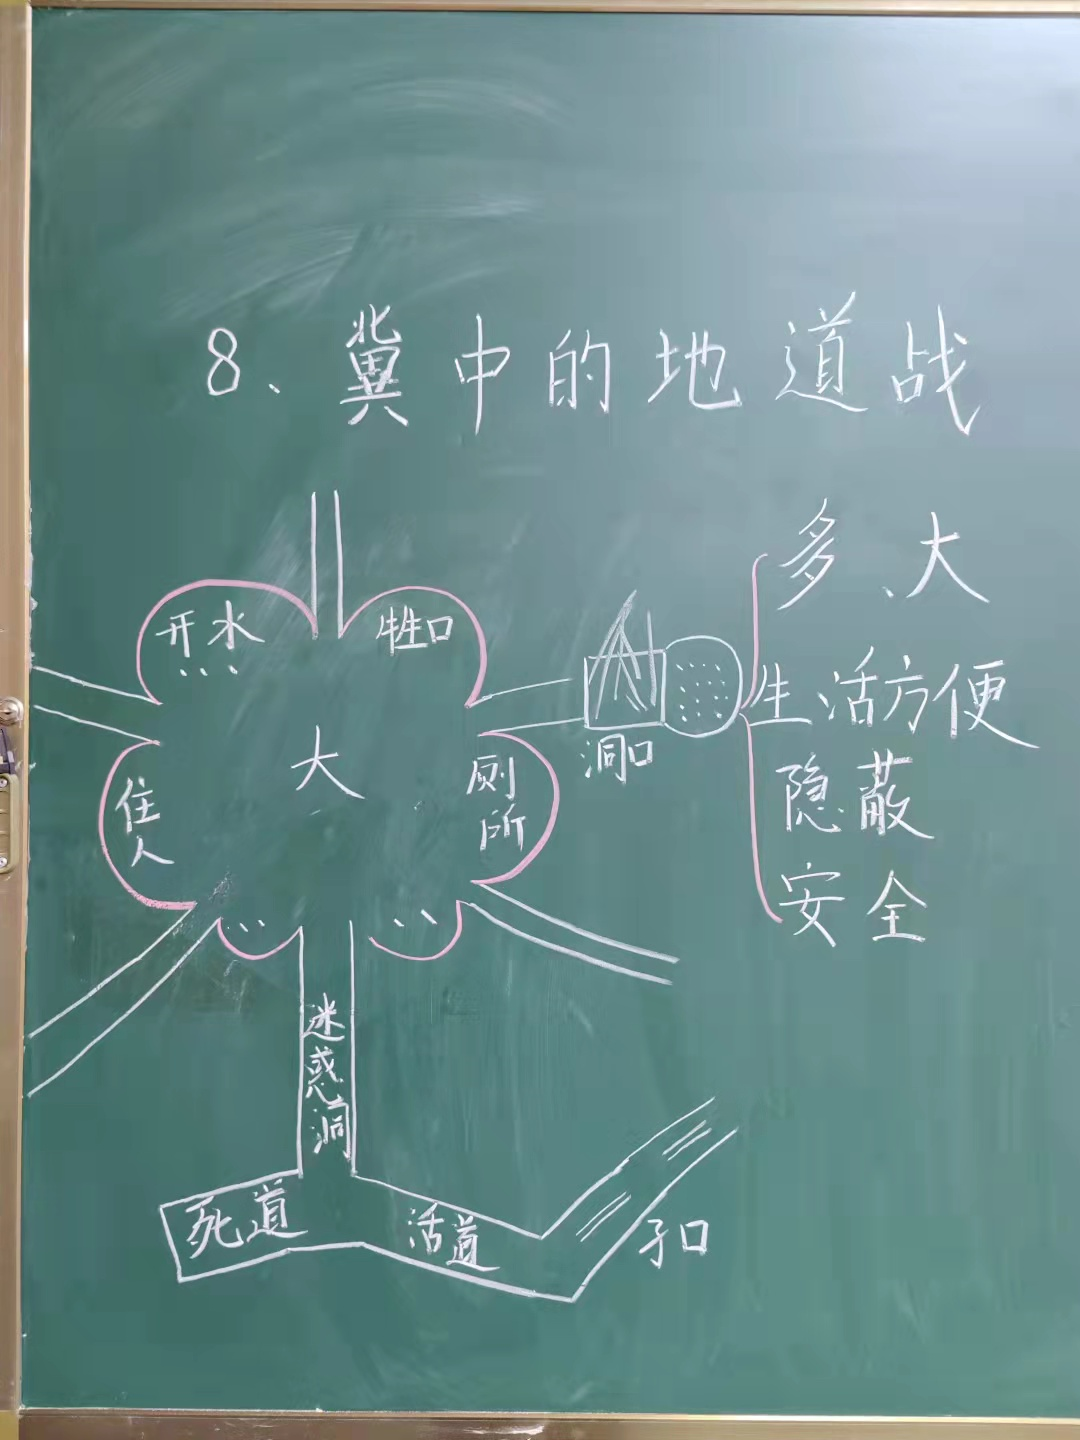 8、冀中的地道战
多、大
生活方便
隐蔽
安全
开水
...
牲口
大
住人
厕所
洞口
...
...
迷惑洞
死道
活道
孑口